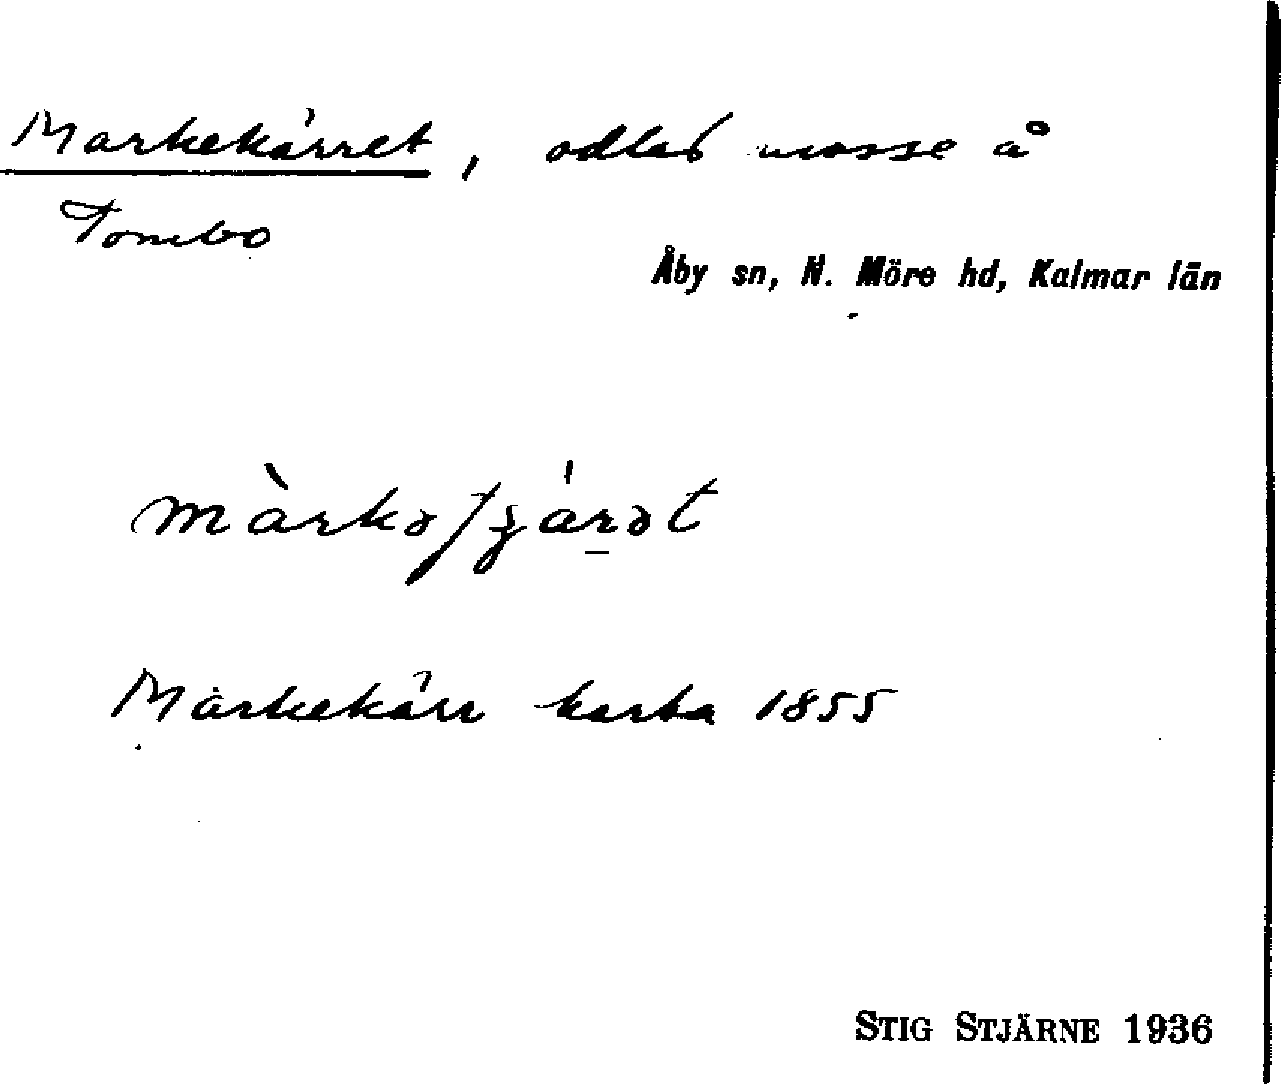 Markekärret, odlad mosse å
Tombo
Åby sn, N. Möre hd, Kalmar län
Märkekärr karta 1855
STIG STJÄRNE 1936